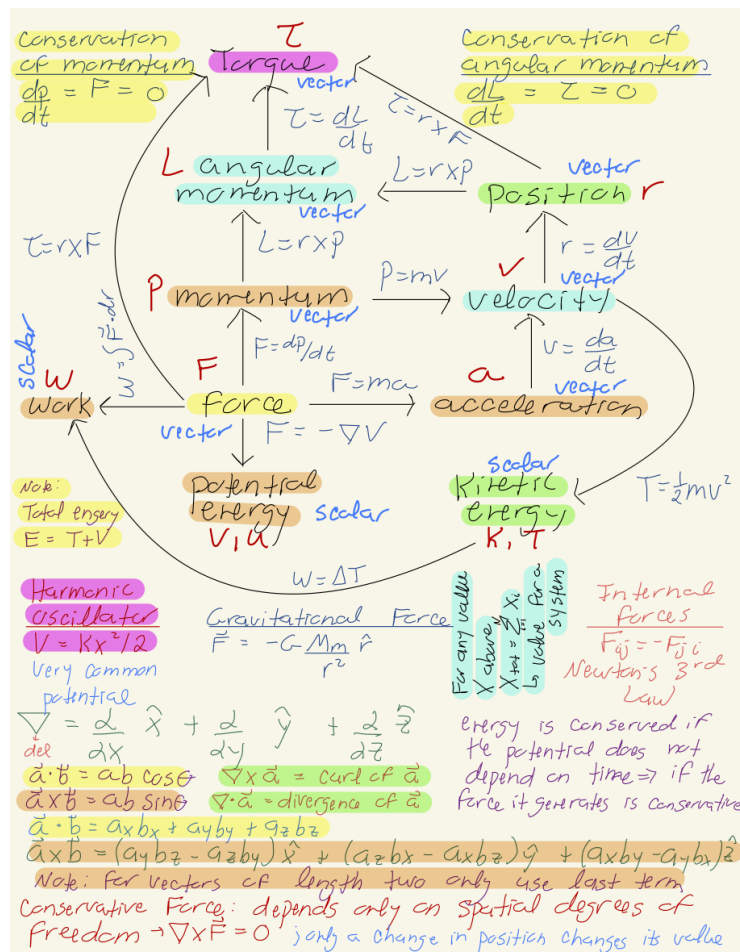 Conservation
of momentum
dp/dt = F = 0
τ
Torque
vector
Conservation of
angular momentum
dL/dt = τ = 0
τ = dL/dt
τ = r x F
L angular
momentum
vector
L = r x P
vector
position r
τ = r x F
L = r x P
r = dv/dt
P momentum
vector
P = mv
v
vector
velocity
W = ∫F⃗·dr
F = dp/dt
v = da/dt
scalar
W
work
F
force
vector
F = ma
a
vector
acceleration
F = -∇V
potential
energy
scalar
V, U
scalar
kinetic
energy
K, T
T = ½mv²
Note:
Total engery
E = T+V
W = ΔT
Harmonic
oscillator
V = Kx²/2
very common
potential
Gravitational Force
F⃗ = -G Mm/r² r̂
For any value
X above,
X tot = Σ i=1 N Xi
↳ value for a
system
Internal
forces
Fij = -Fji
Newton's 3rd
Law
∇ = d/dx x̂ + d/dy ŷ + d/dz ẑ
del
a⃗·b⃗ = ab cosθ
∇xa⃗ = curl of a⃗
a⃗xb⃗ = ab sinθ
∇·a⃗ = divergence of a⃗
a⃗·b⃗ = axbx + ayby + azbz
energy is conserved if
the potential does not
depend on time ⇒ if the
force it generates is conservative
a⃗xb⃗ = (aybz - azby)x̂ + (azbx - axbz)ŷ + (axby - aybx)ẑ
Note: for vectors of length two only use last term
Conservative Force: depends only on spatial degrees of
freedom → ∇xF⃗ = 0 ; only a change in position changes its value